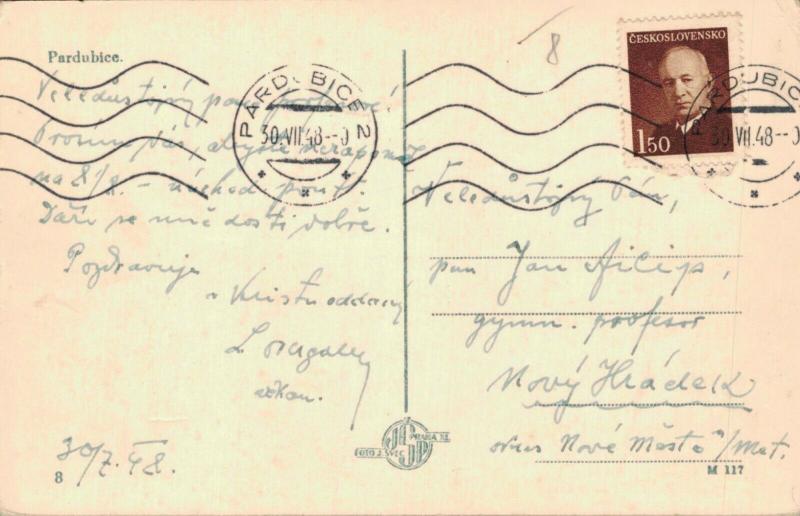 Pardubice.
8
ČESKOSLOVENSKO
1.50
PARDUBICE 2
30.VII.48
PARDUBICE
30.VII.48
Veledůstojný pane profesore!
Prosím Vás, abyste nezapomněl
na 8/8. –
Daří se mně dosti dobře.
Pozdravuje
v Kristu oddaný
30/7.48.
8
Veledůstojný Pán,
pan Jan
gymn. profesor
Nový Hrádek
okres Nové Město n/Met.
FOTO J. ŠVEC PRAHA XI.
M 117